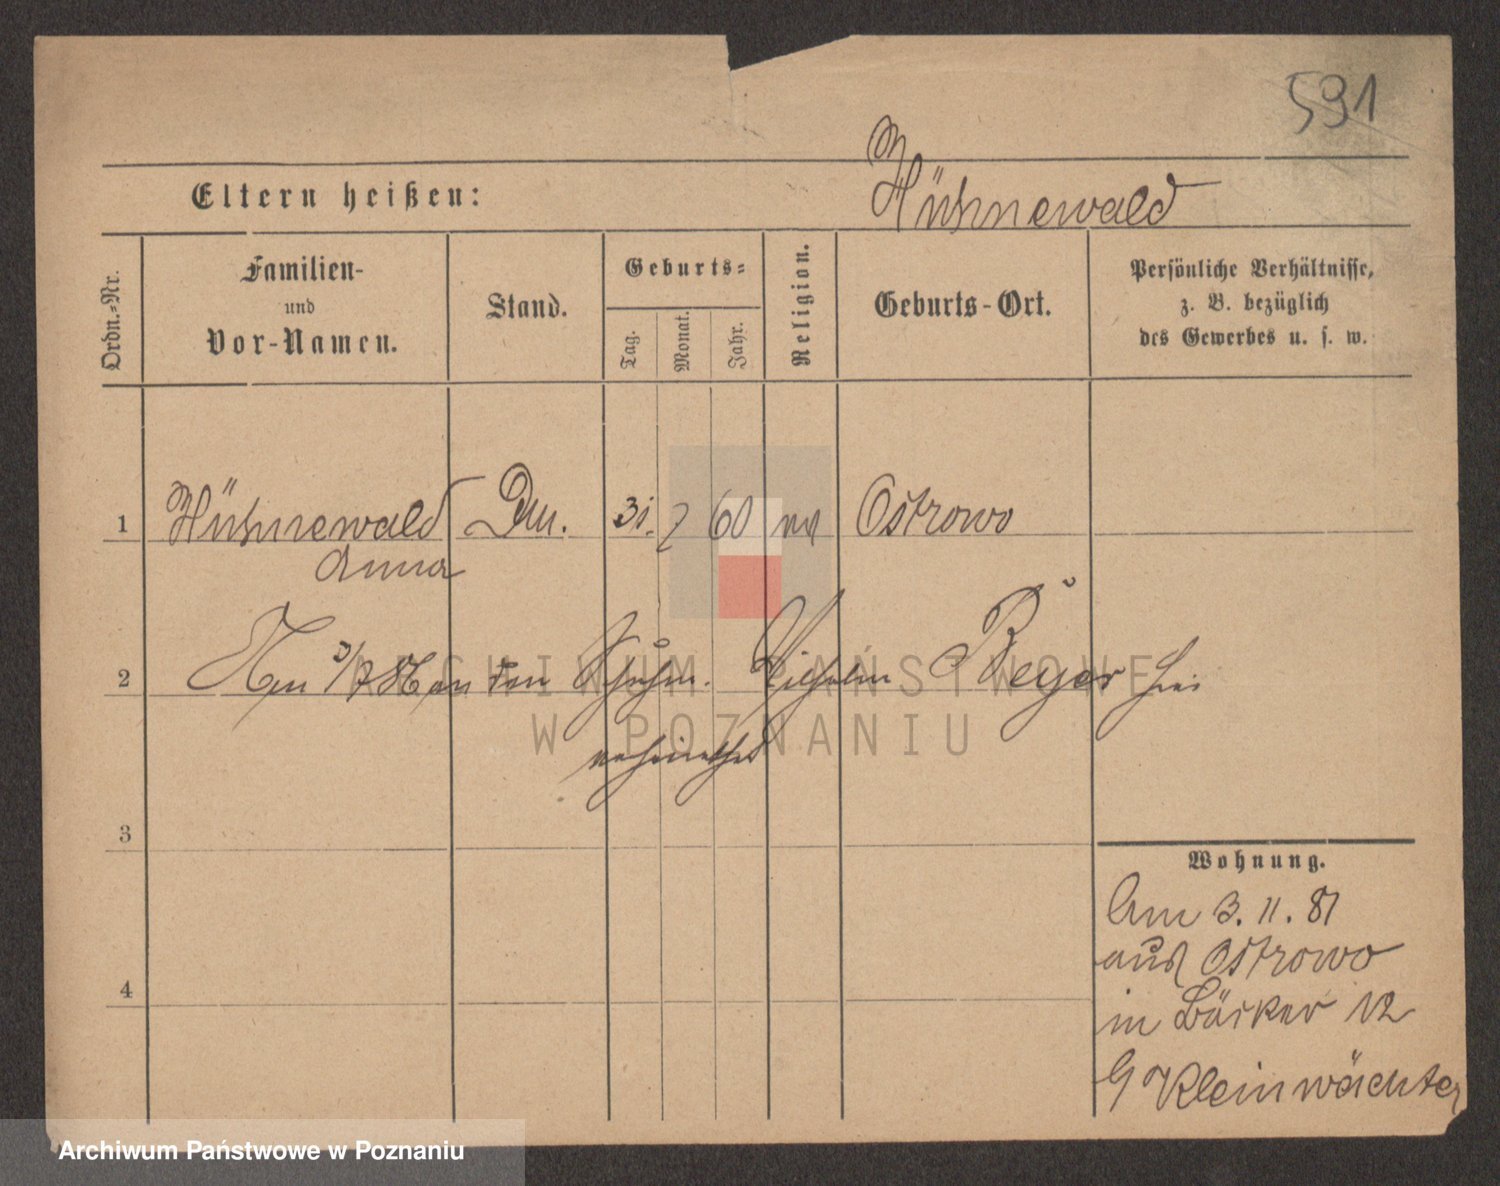 591
Hühnewald
Eltern heißen:
Ordn.-Nr.
Familien-
und
Vor-Namen.
Stand.
Geburts-
Tag.
Monat.
Jahr.
Religion.
Geburts-Ort.
Persönliche Verhältnisse,
z. B. bezüglich
des Gewerbes u. s. w.
1 Hühnewald 31. 7 60 Ostrowo
Anna
2 3/7 86 an den Schuhm. Wilhelm Beyer hier
verheirathet
3
4
Wohnung.
Am 3. 11. 81
aus Ostrowo
in Bäcker 12
Kleinwächter
ARCHIWUM PAŃSTWOWE
W POZNANIU
Archiwum Państwowe w Poznaniu